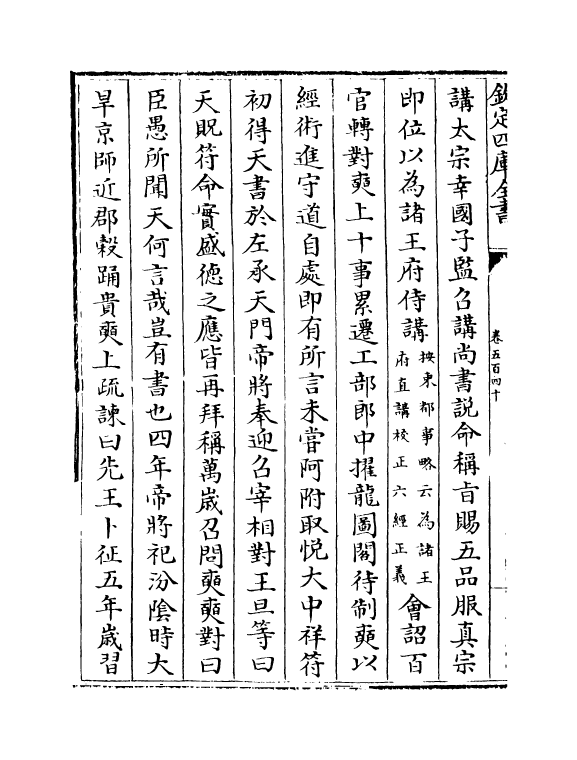 欽定四庫全書
卷五百四十
講太宗幸國子監召講尚書說命稱旨賜五品服真宗
即位以為諸王府侍講按東都事略云為諸王府直講校正六經正義會詔百
官轉對奭上十事累遷工部郎中擢龍圖閣待制奭以
經術進守道自處即有所言未嘗阿附取悅大中祥符
初得天書於左承天門帝將奉迎召宰相對王旦等曰
天貺符命實盛德之應皆再拜稱萬歲召問奭奭對曰
臣愚所聞天何言哉豈有書也四年帝將祀汾隂時大
旱京師近郡穀踊貴奭上疏諫曰先王卜征五年歲習